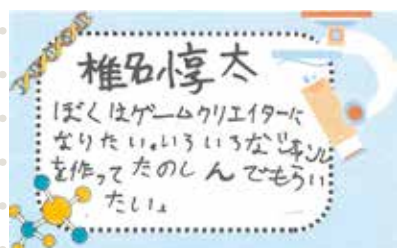 椎名惇太
ぼくはゲームクリエイターに
なりたい。いろいろなジャンル
を作ってたのしんでもらい
たい。